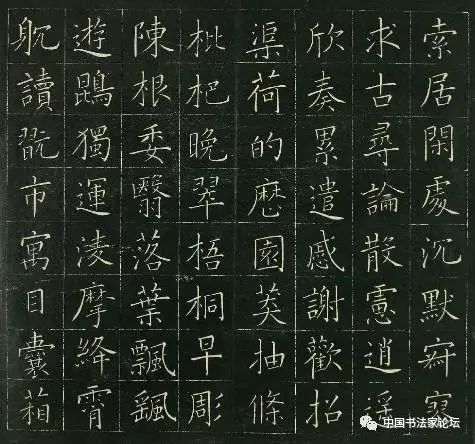 索居閑處沉默寂寥
求古尋論散慮逍遥
欣奏累遣慼謝歡招
渠荷的歷園莽抽條
枇杷晚翠梧桐早彫
陳根委翳落葉飄颻
遊鵾獨運淩摩絳霄
耽讀翫市寓目囊箱
中国书法家论坛